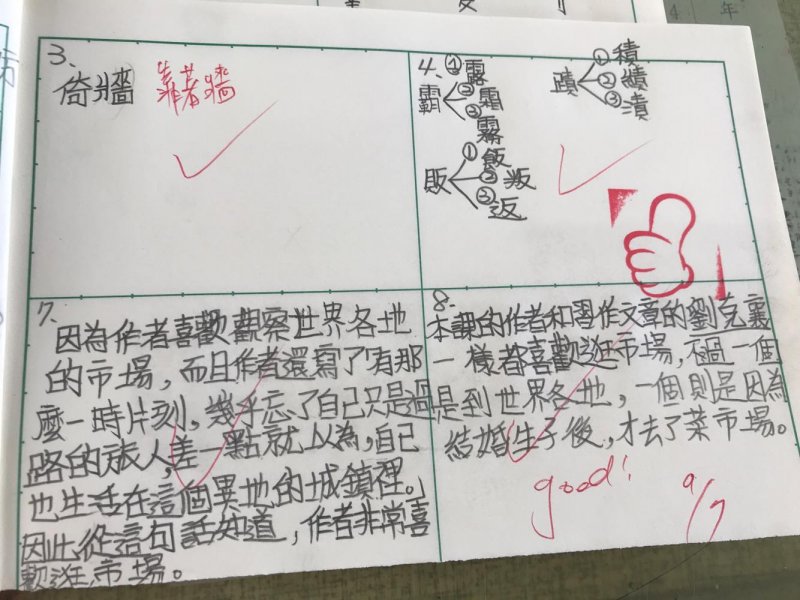 3、
倚牆 靠著牆
4、
霸 ①露
②霜
③霧
販 ①飯
②叛
③返
蹟 ①積
②績
③漬
7、
因為作者喜歡觀察世界各地
的市場，而且作者還寫了「有那
麼一時片刻，幾乎忘了自己只是過
路的旅人，差一點就以為，自己
也生活在這個異地的城鎮裡。」
因此從這句話知道，作者非常喜
歡逛市場。
8、
本課的作者和習作文章的劉克襄
一樣都喜歡逛市場，不過一個
是到世界各地，一個則是因為
結婚生子後，才去了菜市場。
good!
9/7